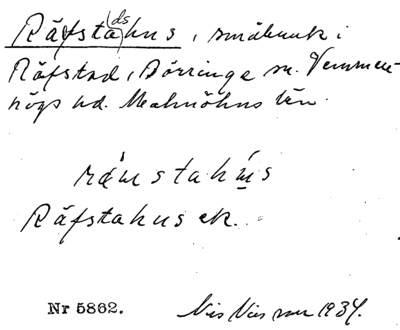 Räfsta(ds)hus, småbruk i
Räfstad, Börringe sn. Vemmen-
högs hd. Malmöhus län.
räustahus
Räfstahus ek.
Nr 5862. Nils Nilsson 1934.